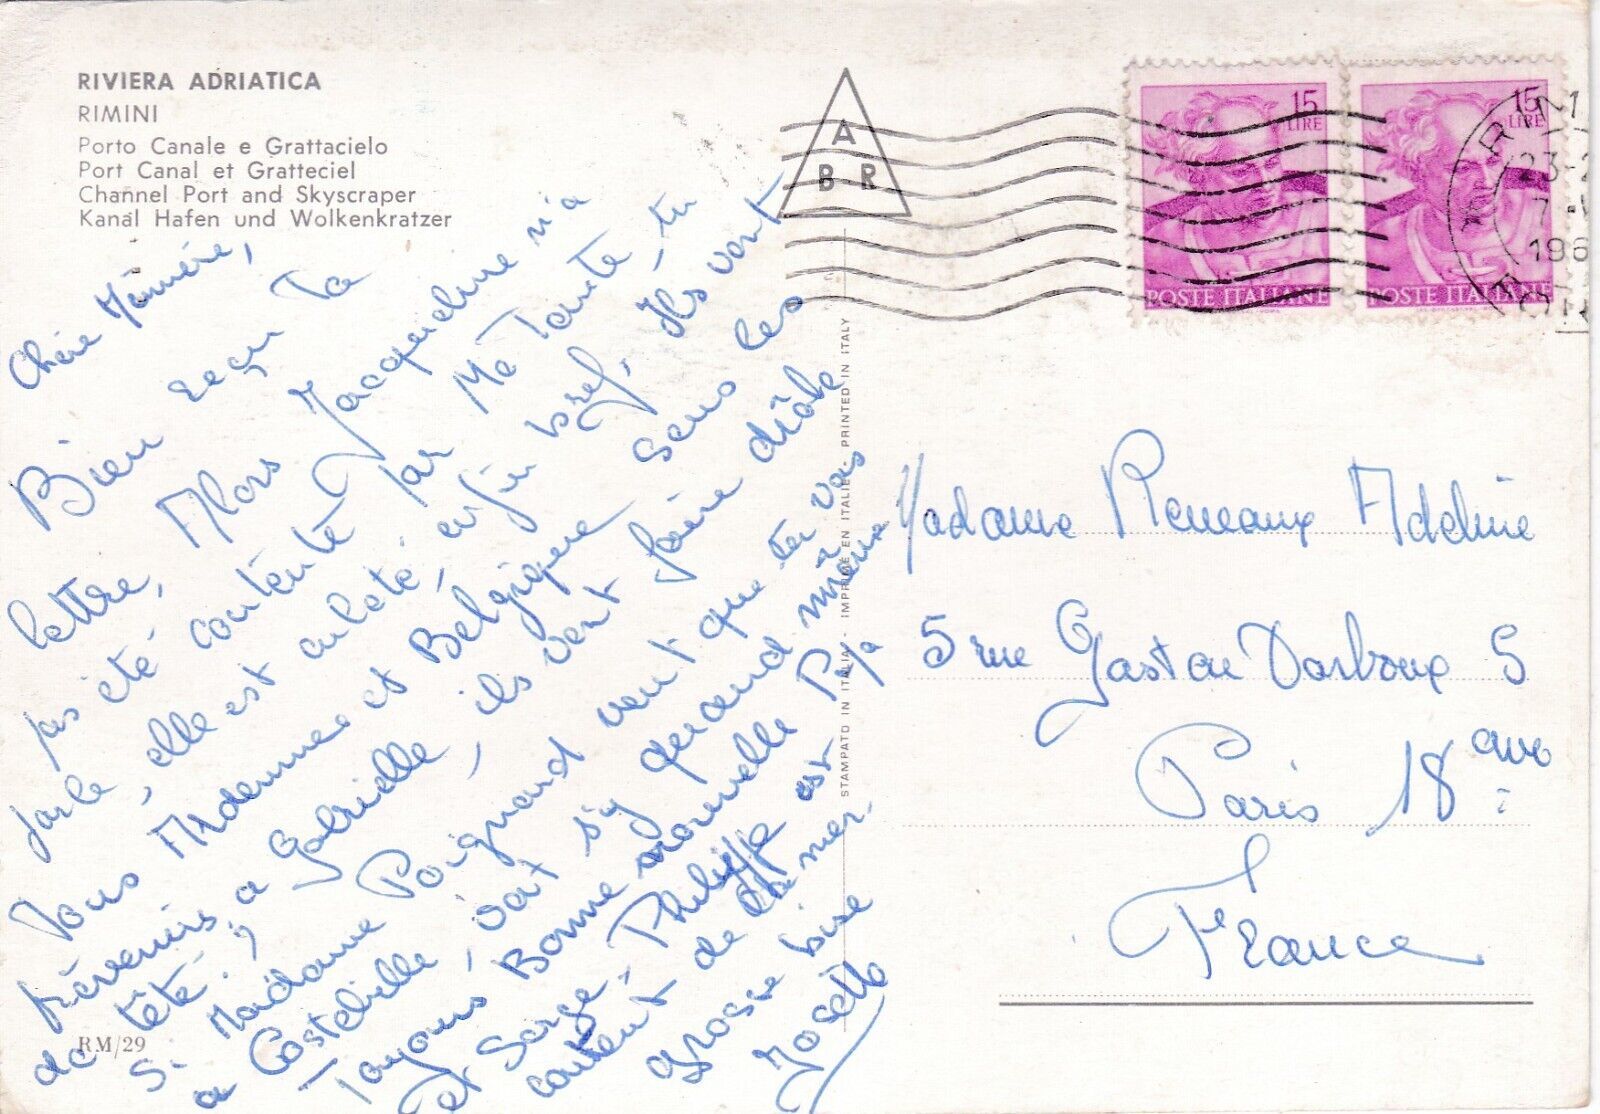 RIVIERA ADRIATICA
RIMINI
Porto Canale e Grattacielo
Port Canal et Gratteciel
Channel Port and Skyscraper
Kanal Hafen und Wolkenkratzer
A
B R
15
LIRE
POSTE ITALIANE
15
LIRE
POSTE ITALIANE
23-2
196
Chère Mémère,
Bien reçu ta
lettre, Alors Jacqueline n'a
pas été contente par Mé Tante tu
parle, elle est culoté, enfin bref, Ils vont
Tous Ardenne et Belgique sens les
prévenirs a Gabrielle, ils vont faire diable
de tété.
Si Madame Poignard veut que tu vas
a Costebelle, vat s'y quand même
Toujours Bonne nouvelle Papa
et Serge, Philippe est
content de la mer.
grosse bise
Josette
STAMPATO IN ITALIA - IMPRIMÉ EN ITALIE - PRINTED IN ITALY
Madame Remeaux Adeline
5 rue Gaston Darboux 5
Paris 18 eme
France
RM/29